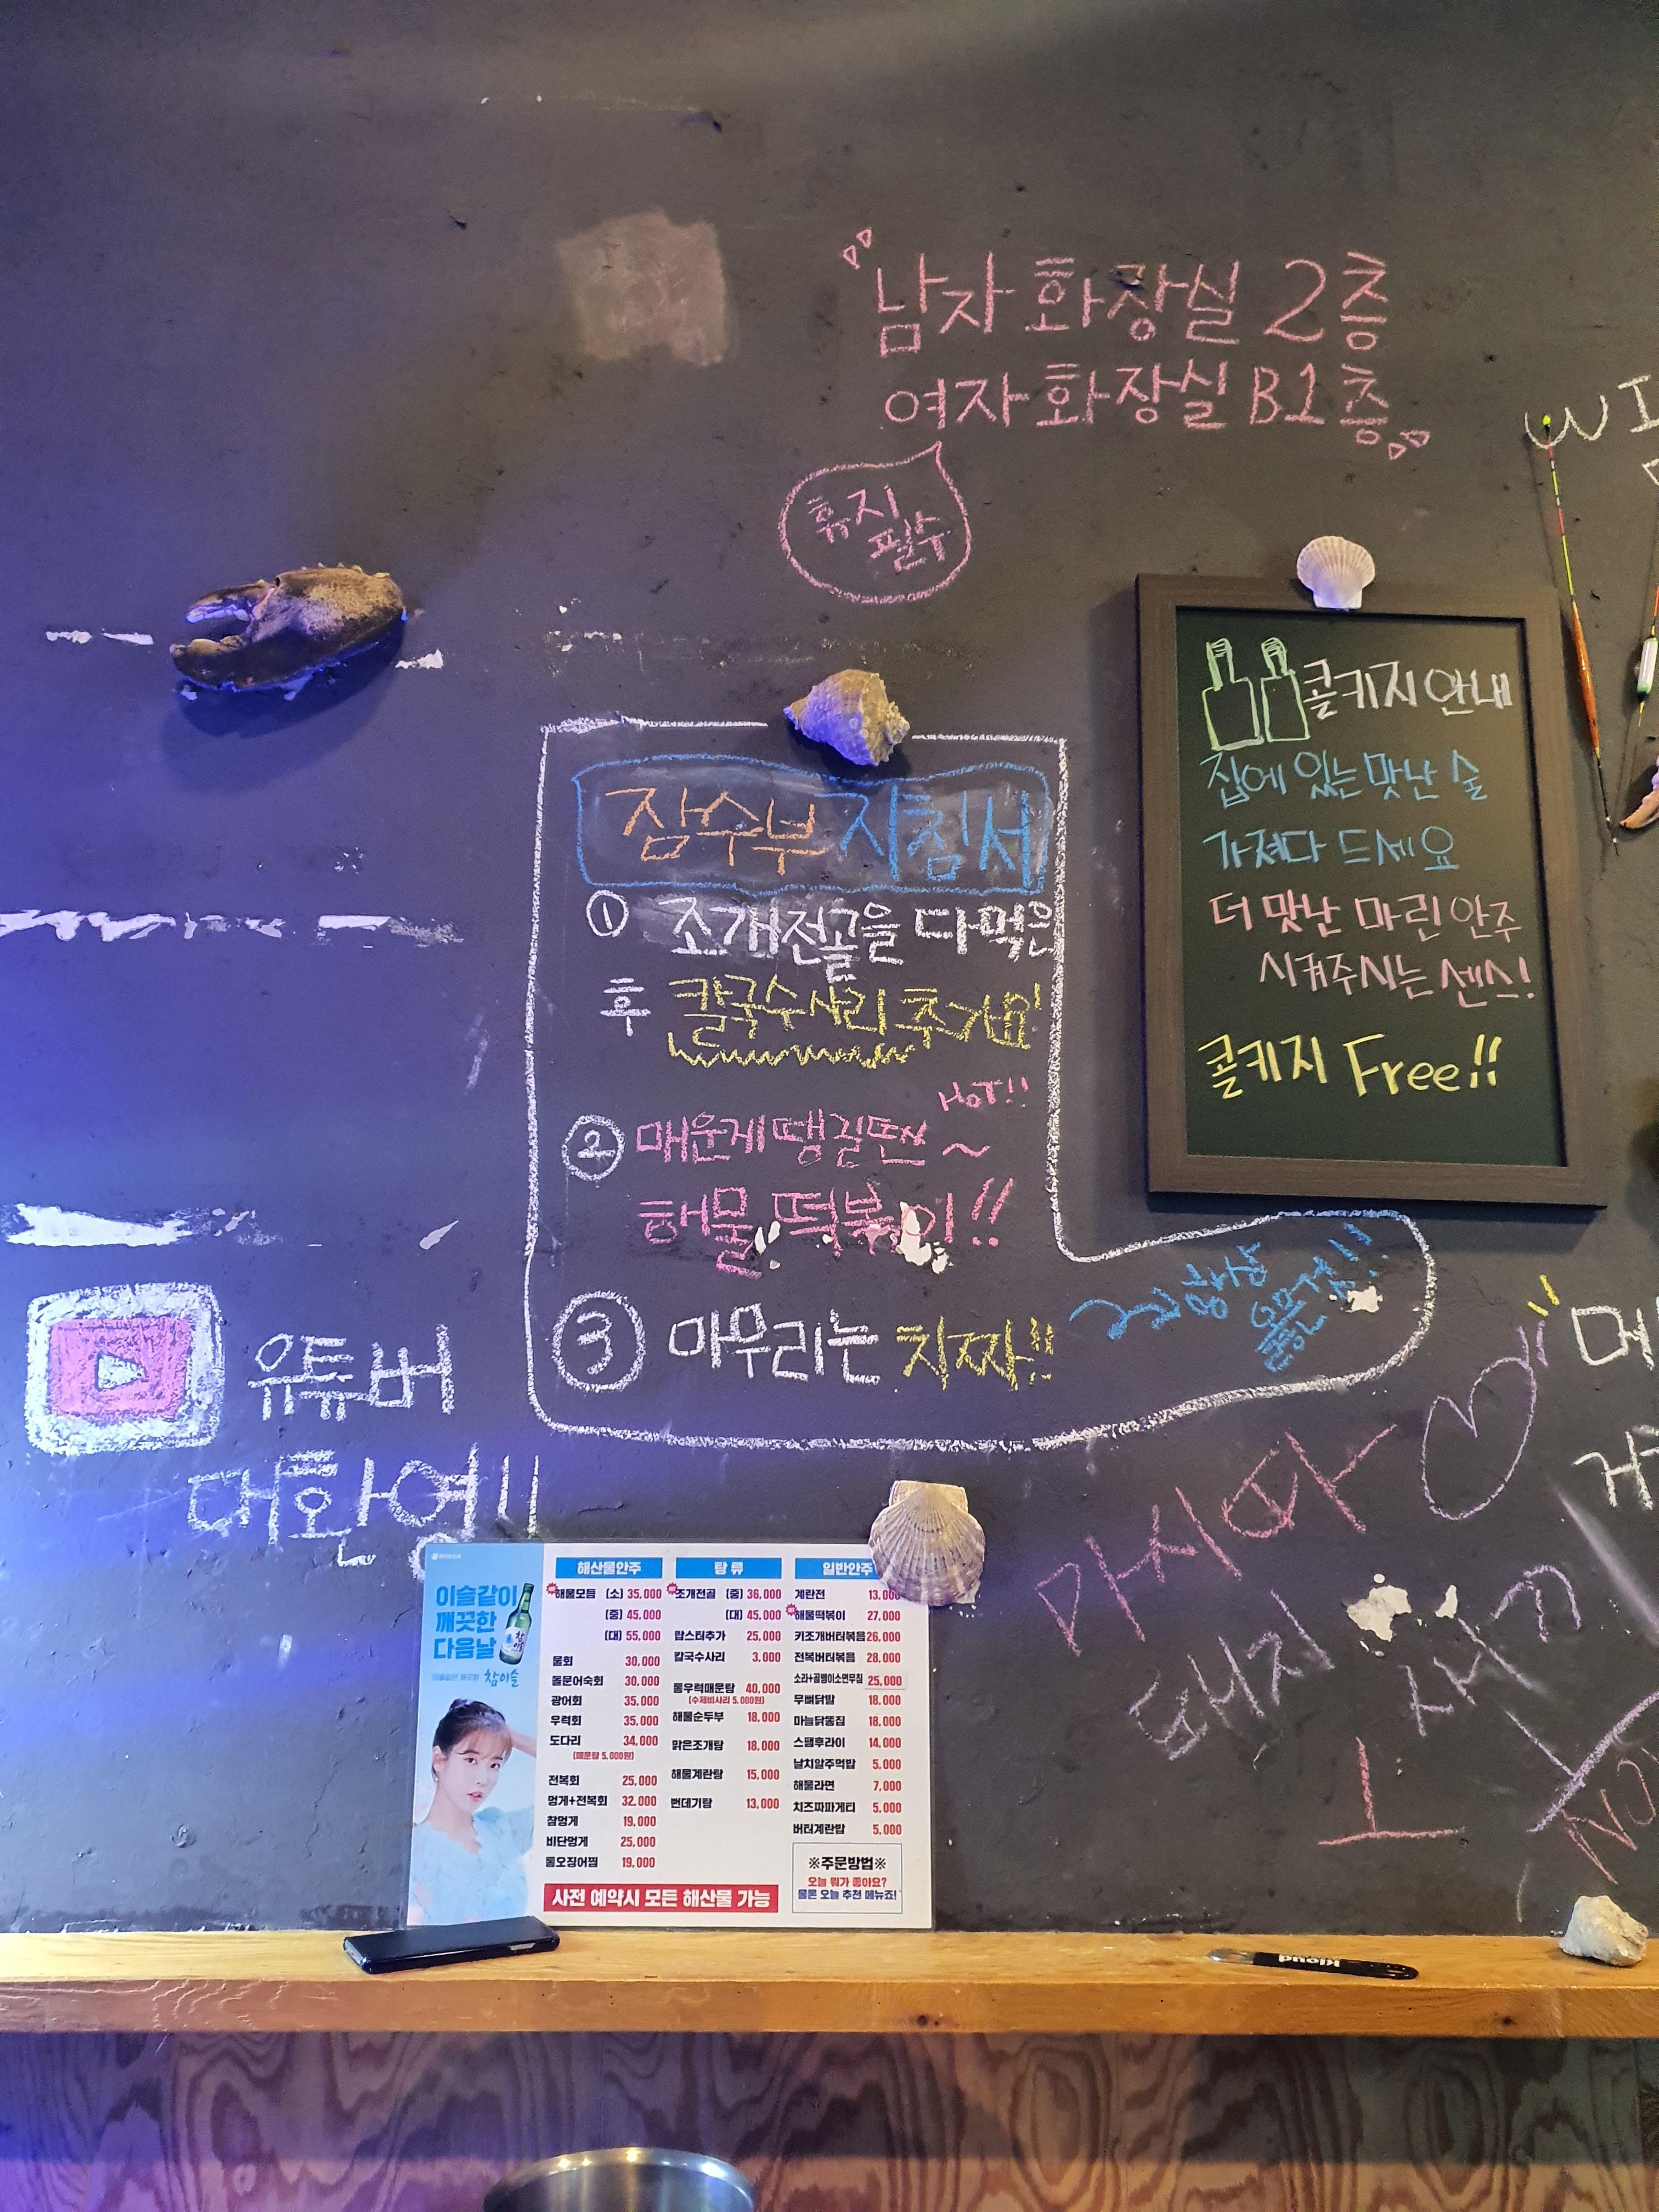 남자 화장실 2층
여자 화장실 B1층
휴지
필수
콜키지 안내
집에 있는 맛난 술
가져다 드세요
더 맛난 마린 안주
시켜주시는 센스!
콜키지 Free!!
잠수부 지침서
① 조개전골을 다먹은
후 칼국수사리 추가요!
HOT!!
② 매운게 땡길땐~
해물 떡볶이!!
③ 마무리는 치짜!!
유튜버
대환영!!
마시따
돼지
이슬같이
깨끗한
다음날
참이슬
해산물안주
해물모듬 (소) 35,000
(중) 45,000
(대) 55,000
물회 30,000
돌문어숙회 30,000
광어회 35,000
우럭회 35,000
도다리 34,000
(매운탕 5,000원)
전복회 25,000
멍게+전복회 32,000
참멍게 19,000
비단멍게 25,000
통오징어찜 19,000
탕 류
조개전골 (중) 36,000
(대) 45,000
랍스터추가 25,000
칼국수사리 3,000
통우럭매운탕 40,000
(수제비사리 5,000원)
해물순두부 18,000
맑은조개탕 18,000
해물계란탕 15,000
번데기탕 13,000
일반안주
계란전 13,000
해물떡볶이 27,000
키조개버터볶음 26,000
전복버터볶음 28,000
소라+골뱅이소면무침 25,000
무뼈닭발 18,000
마늘닭똥집 18,000
스팸후라이 14,000
날치알주먹밥 5,000
해물라면 7,000
치즈짜파게티 5,000
버터계란밥 5,000
※주문방법※
오늘 뭐가 좋아요?
물론 오늘 추천 메뉴죠!
사전 예약시 모든 해산물 가능
Kloud